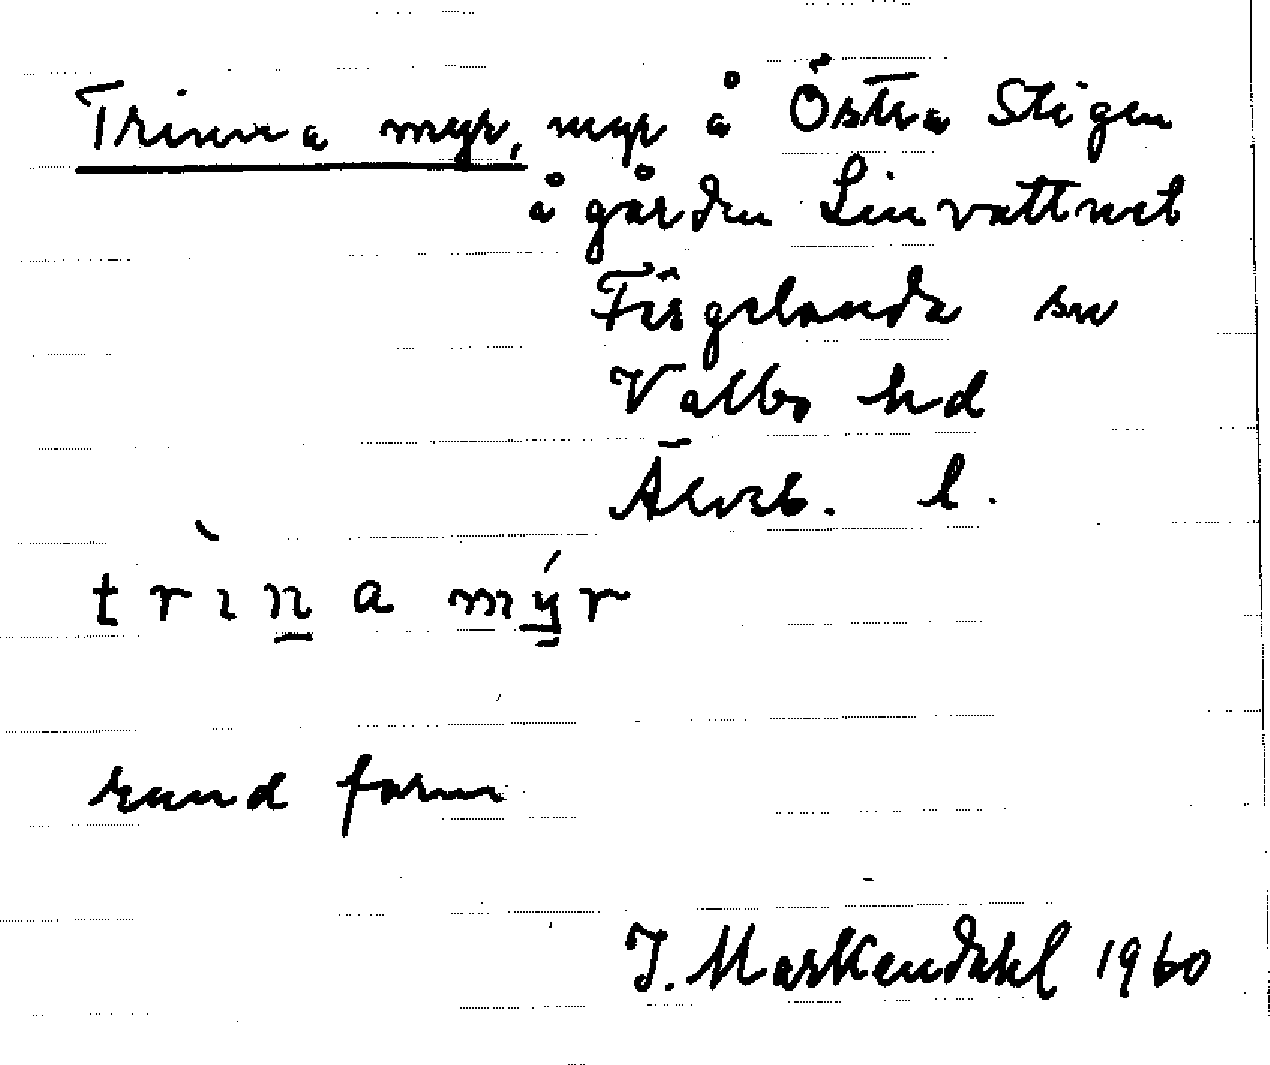 Trinna myr, myr å Östra Stigen
å gården Linvattnet
Färgelanda sn
Valbo hd
Älvsb. l.
trìn̲a mý̲r
rund form
J. Markendahl 1960